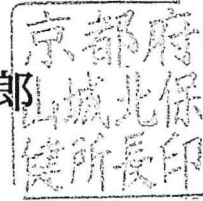 郎
京都府
山城北保
健所長印